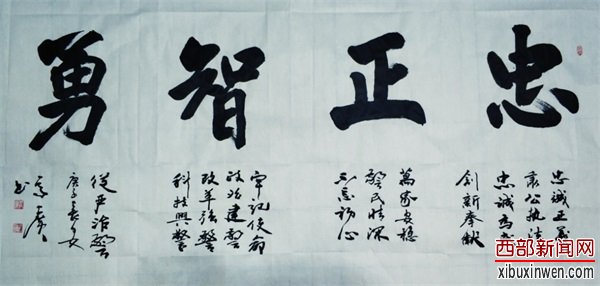 忠正智勇
忠诚正義
秉公执法
忠诚为
创新奉献
萬家安稳
警民情深
不忘初心
牢记使命
政治建警
改革强警
科技興警
從严治警
庚子春
书
西部新闻网
xibuxinwen.com